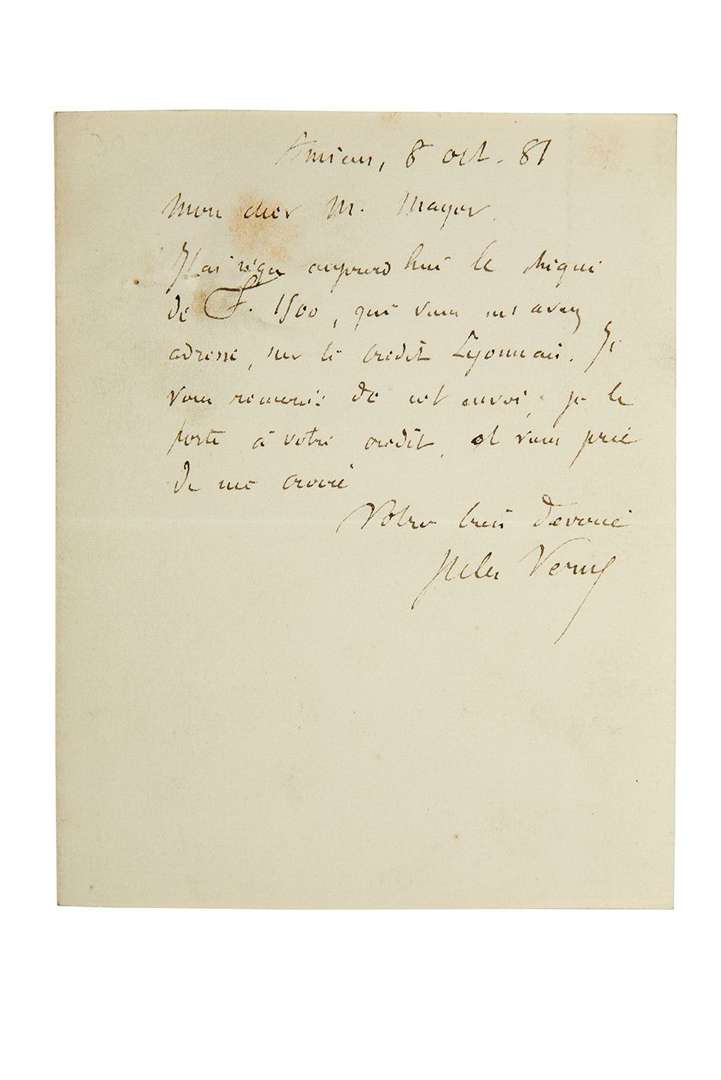 Amiens, 8 oct. 81
Mon cher M. Mayer.
J'ai reçu aujourd'hui le chèque
de F. 1500, que vous m'avez
adressé, sur le Crédit Lyonnais. Je
vous remercie de cet envoi, je le
porte à votre crédit, et vous prie
de me croire
Votre bien dévoué
Jules Verne